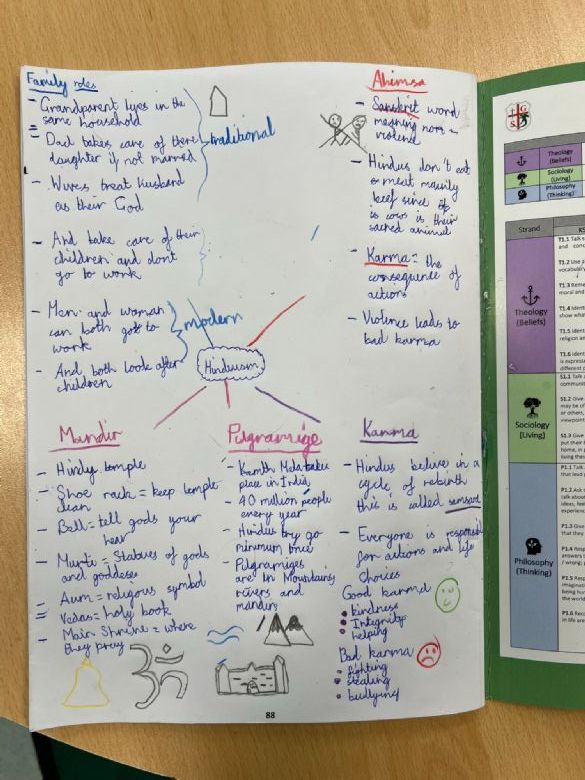 Family roles
- Grandparent lyes in the
same household
- Dad takes care of there
daughter if not married
- Wives treat husband
as their God
- And take care of their
children and dont
go to work
traditional
- Men and woman
can both go to
work
- And both look after
children
modern
Ahimsa
- Sanskrit word
meaning non-
violence
- Hindus don't eat
meat mainly
beef
cow is their
sacred animal
- Karma = the
consequence of
actions
- Violence leads to
bad karma
Hinduism
Mandir
- Hindu temple
- Shoe rack = keep temple
clean
- Bell = tell gods your
hear
- Murti = Statues of gods
and goddeses
- Aum = religous symbol
- Vedas = holy book
- Main Shrine = where
they pray
Pilgramige
- Kumbh Mela takes
place in India
- 40 million people
every year
- Hindus try go
minimum once
- Pilgramiges
are in Mountains
rivers and
mandirs
Karma
- Hindus believe in a
cycle of rebirth
this is called samsara
- Everyone is responsible
for actions and life
choices
Good karma
• kindness
• Integrity
• helping
Bad karma
• fighting
• stealing
• bullying
88
Theology
(Beliefs)
Sociology
(Living)
Philosophy
(Thinking)
Strand
Theology
(Beliefs)
Sociology
(Living)
Philosophy
(Thinking)